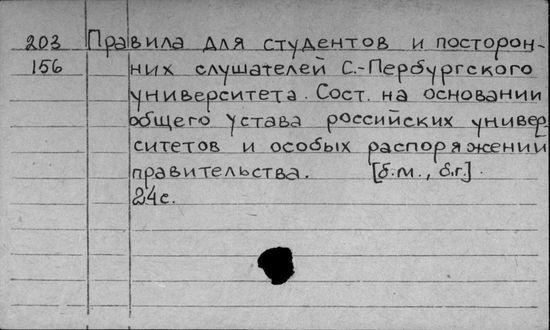 203 Правила для студентов и посторон-
156 них слушателей С.-Пербургского
университета. Сост. на основании
общего устава российских универ
ситетов и особых распоряжений
правительства. [б.м., б.г.].
24с.